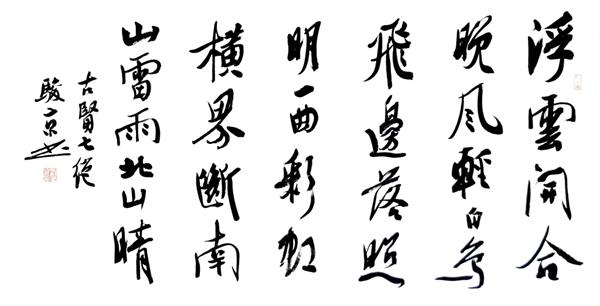 浮雲開合
晚風輕白鳥
飛邊落照
明一曲彩虹
橫界斷南
山雷雨北山晴
古賢七绝
駿京书